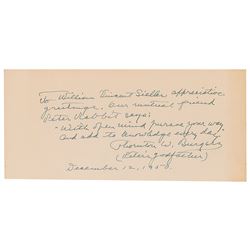 To William Vincent Sieller appreciative
greetings. Our mutual friend
Peter Rabbit says:
"With open mind pursue your way
and add to knowledge every day."
Thornton W. Burgess
(Peter's godfather)
December 12, 1950.